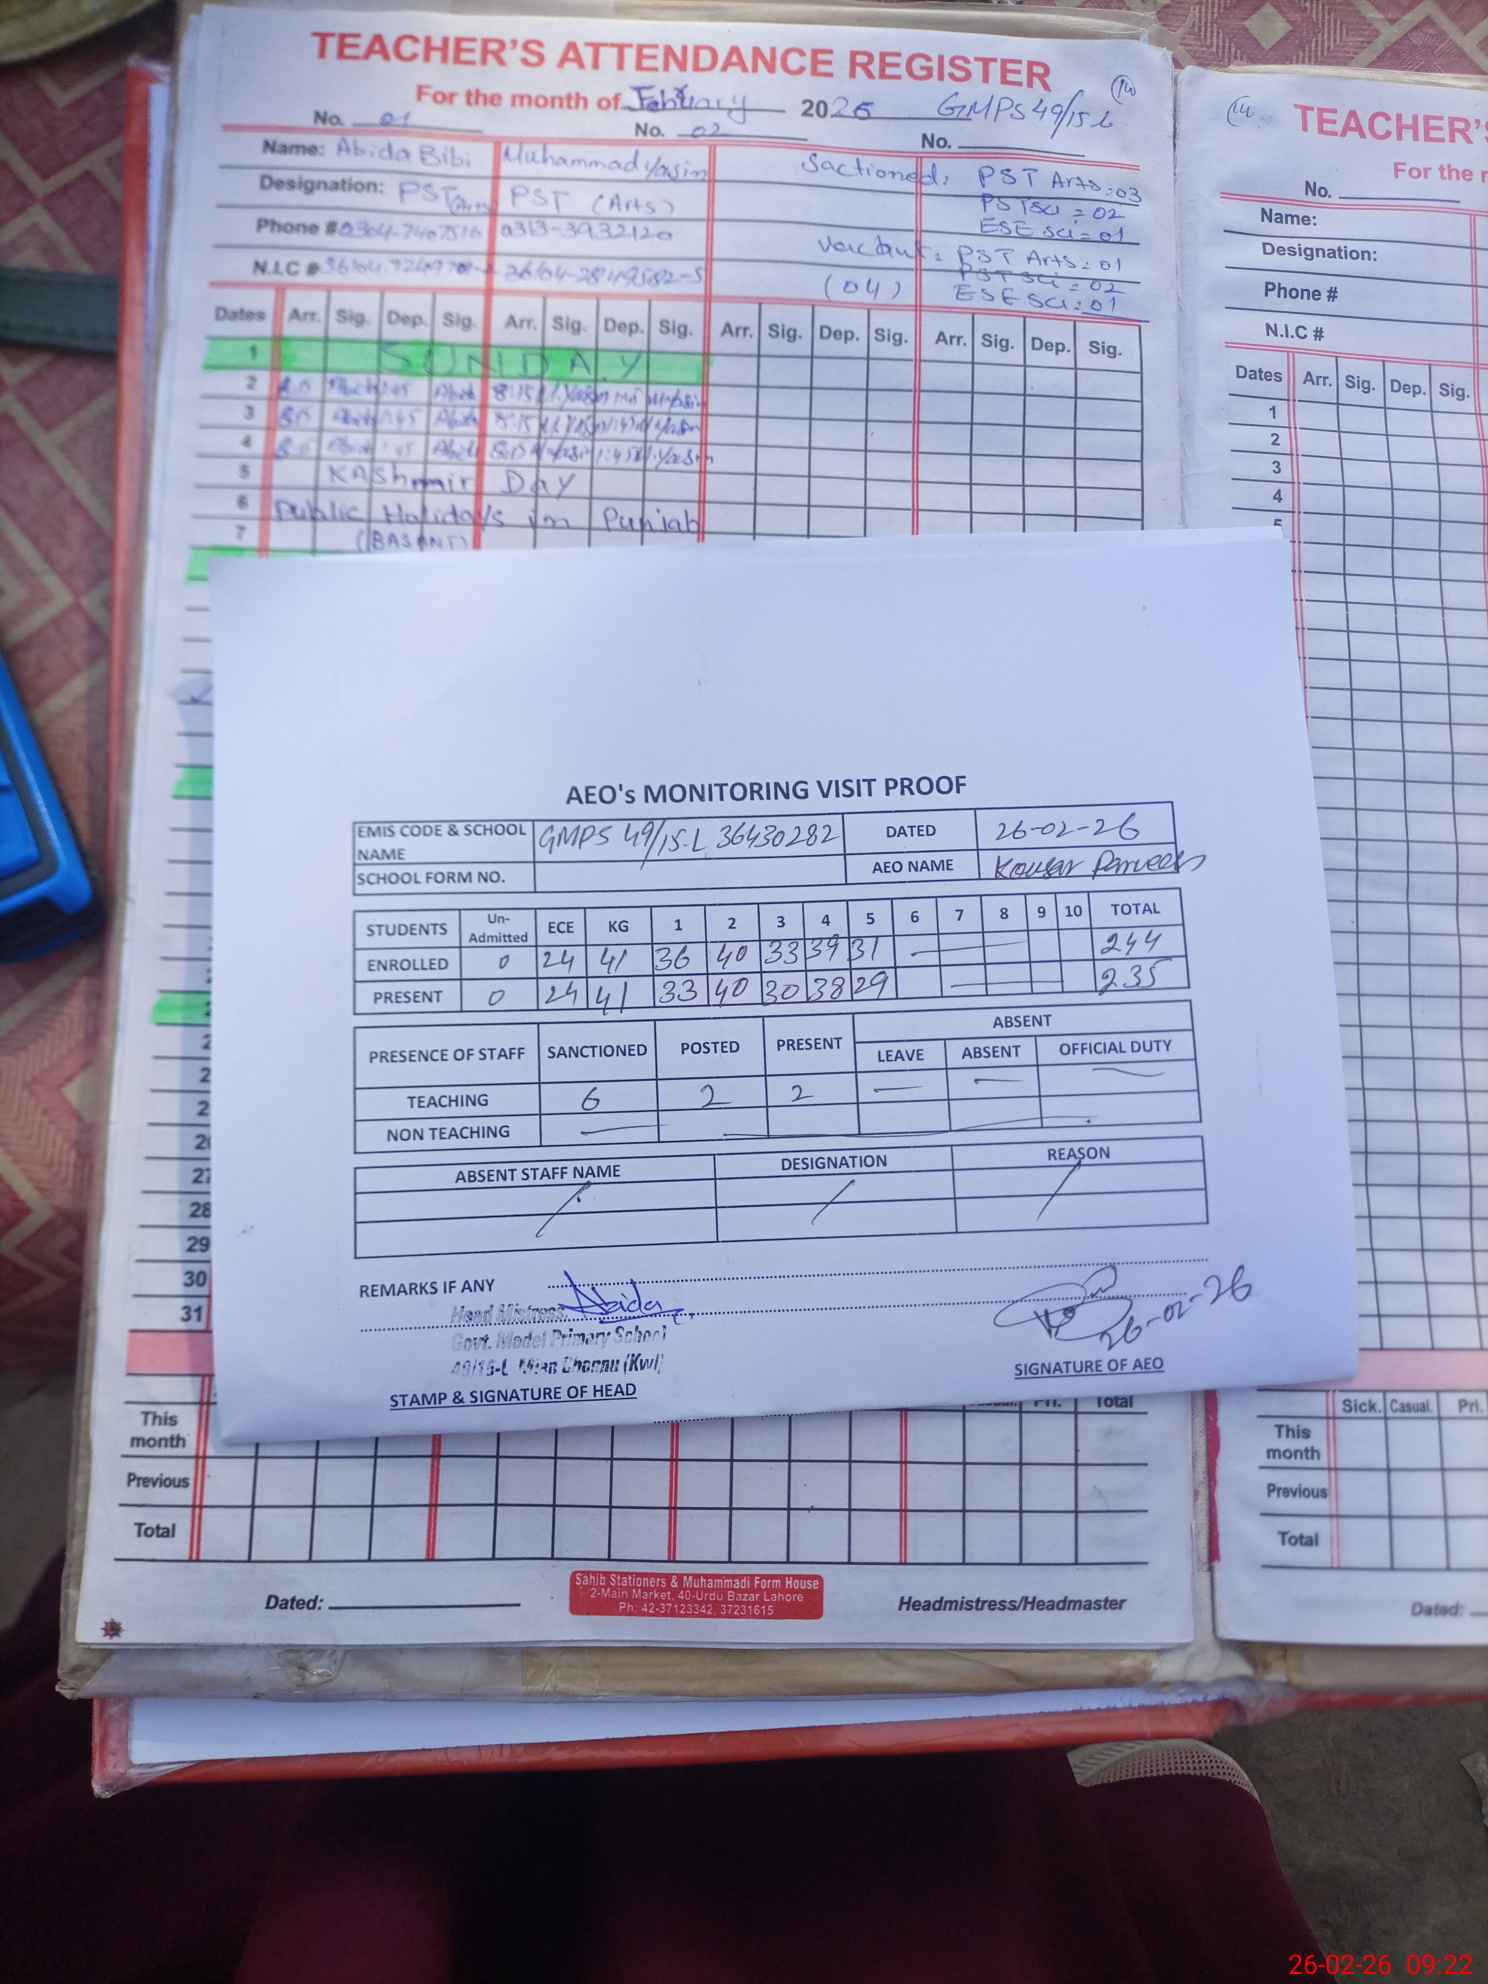 TEACHER'S ATTENDANCE REGISTER
For the month of February 2026 GMPS 49/15-L
14
No. 01 No. 02 No.
Name: Abida Bibi Muhammad Yasin
Designation: PST (Arts) PST (Arts)
Phone #
N.I.C #
Sactioned: PST Arts: 03
PST Sci = 02
ESE Sci = 01
Vacant: PST Arts: 01
(04) PST Sci = 02
ESE Sci: 01
Dates Arr. Sig. Dep. Sig. Arr. Sig. Dep. Sig. Arr. Sig. Dep. Sig. Arr. Sig. Dep. Sig.
1 SUNDAY
2
3
4
5 Kashmir Day
6 Public Holidays in Punjab
7 (BASANT)
27
28
29
30
31
Total
This month
Previous
Total
Dated:
Sahib Stationers & Muhammadi Form House
2-Main Market, 40-Urdu Bazar Lahore
Ph: 42-37123342, 37231615
Headmistress/Headmaster
14 TEACHER'S
For the
No.
Name:
Designation:
Phone #
N.I.C #
Dates Arr. Sig. Dep. Sig.
1
2
3
4
5
Sick. Casual. Pri.
This month
Previous
Total
Dated:
AEO's MONITORING VISIT PROOF
EMIS CODE & SCHOOL NAME GMPS 49/15-L 36430282 DATED 26-02-26
SCHOOL FORM NO. AEO NAME Kousar Parveen
STUDENTS Un-Admitted ECE KG 1 2 3 4 5 6 7 8 9 10 TOTAL
ENROLLED 0 24 41 36 40 33 39 31 — 244
PRESENT 0 24 41 33 40 30 38 29 — 235
PRESENCE OF STAFF SANCTIONED POSTED PRESENT ABSENT
LEAVE ABSENT OFFICIAL DUTY
TEACHING 6 2 2 — — —
NON TEACHING — —
ABSENT STAFF NAME DESIGNATION REASON
REMARKS IF ANY
Abida
Head Mistress
Govt. Model Primary School
49/15-L Mian Channu (Kwl)
STAMP & SIGNATURE OF HEAD
26-02-26
SIGNATURE OF AEO
26-02-26 09:22